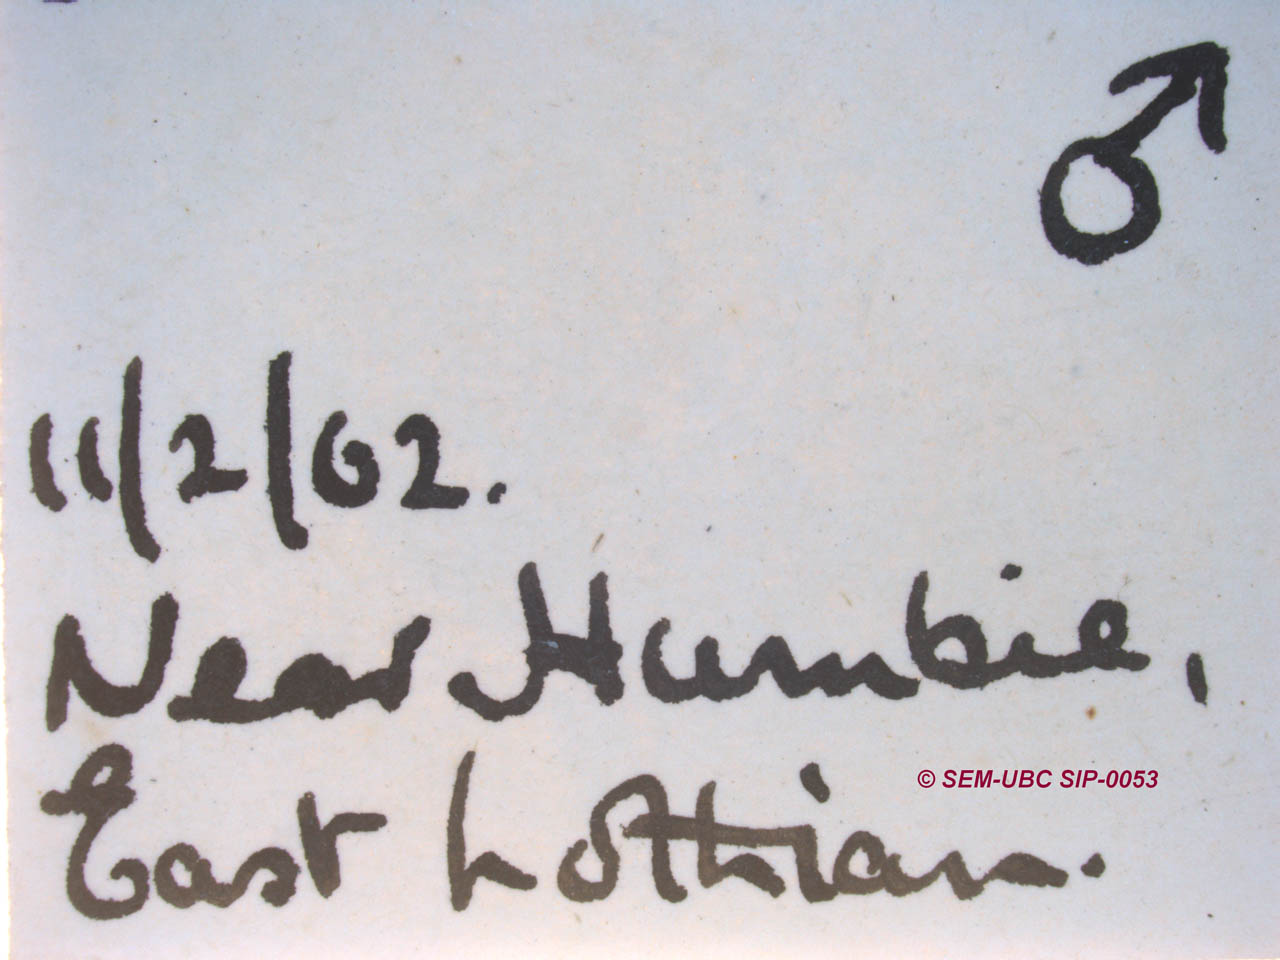 ♂
11/2/62.
Near Humbie,
East Lothian.
© SEM-UBC SIP-0053